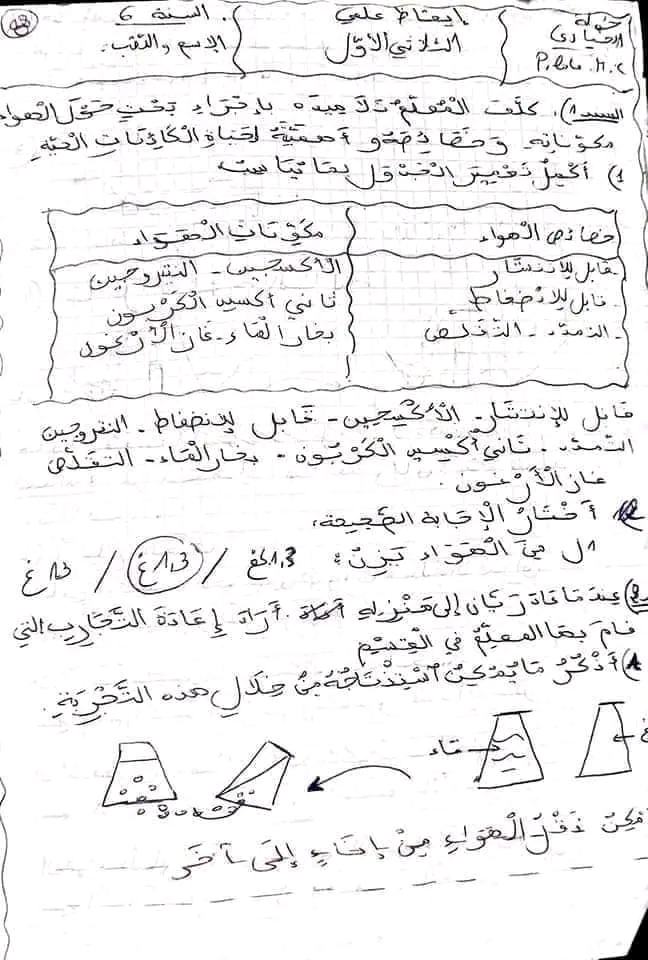 خولة
إيقاظ علمي
السنة 6
الثلاثي الأوّل
الاسم واللقب:
السند 1). كلّف المُعلّم تلاميذه بإجراء بحثٍ حول الهواء
مكوّناته وخصائصه وأهميّته لحياة الكائنات الحيّة
1) أكمل تعمير الجدول بما يناسب
خصائص الهواء
مكوّنات الهواء
- قابل للانتشار
الأكسجين - النيتروجين
- قابل للانضغاط
ثاني أكسيد الكربون
- التمدّد - التقلّص
بخار الماء - غاز الأرغون
قابل للإنتشار - الأكسيجين - قابل للإنضغاط - النتروجين
التمدّد - ثاني أكسيد الكربون - بخار الماء - التقلّص
غاز الأرغون.
أختار الإجابة الصّحيحة:
1ل من الهواء يزن: 1,3 كغ / 1,3 غ / 13 غ
عندما غادر ريان إلى منزله أراد إعادة التّجارب التي
قام بها المعلّم في القسم
أذكر ما يُمكن استنتاجه من خلال هذه التّجربة.
ماء
يمكن نقل الهواء من إناءٍ إلى آخر